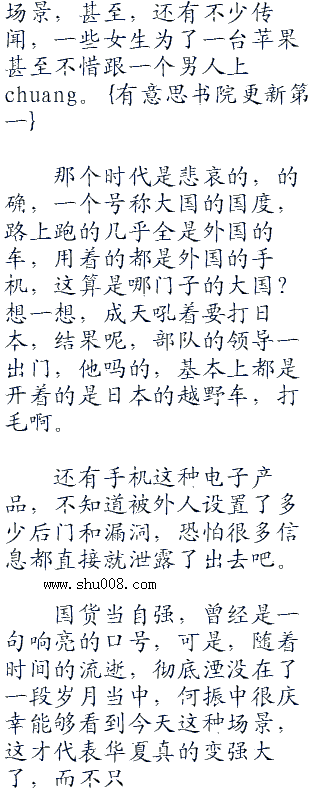 场景，甚至，还有不少传
闻，一些女生为了一台苹果
甚至不惜跟一个男人上
chuang。{有意思书院更新第
一}
那个时代是悲哀的，的
确，一个号称大国的国度，
路上跑的几乎全是外国的
车，用着的都是外国的手
机，这算是哪门子的大国？
想一想，成天吼着要打日
本，结果呢，部队的领导一
出门，他吗的，基本上都是
开着的是日本的越野车，打
毛啊。
还有手机这种电子产
品，不知道被外人设置了多
少后门和漏洞，恐怕很多信
息都直接就泄露了出去吧。
www.shu008.com
国货当自强，曾经是一
句响亮的口号，可是，随着
时间的流逝，彻底湮没在了
一段岁月当中，何振中很庆
幸能够看到今天这种场景，
这才代表华夏真的变强大
了，而不只